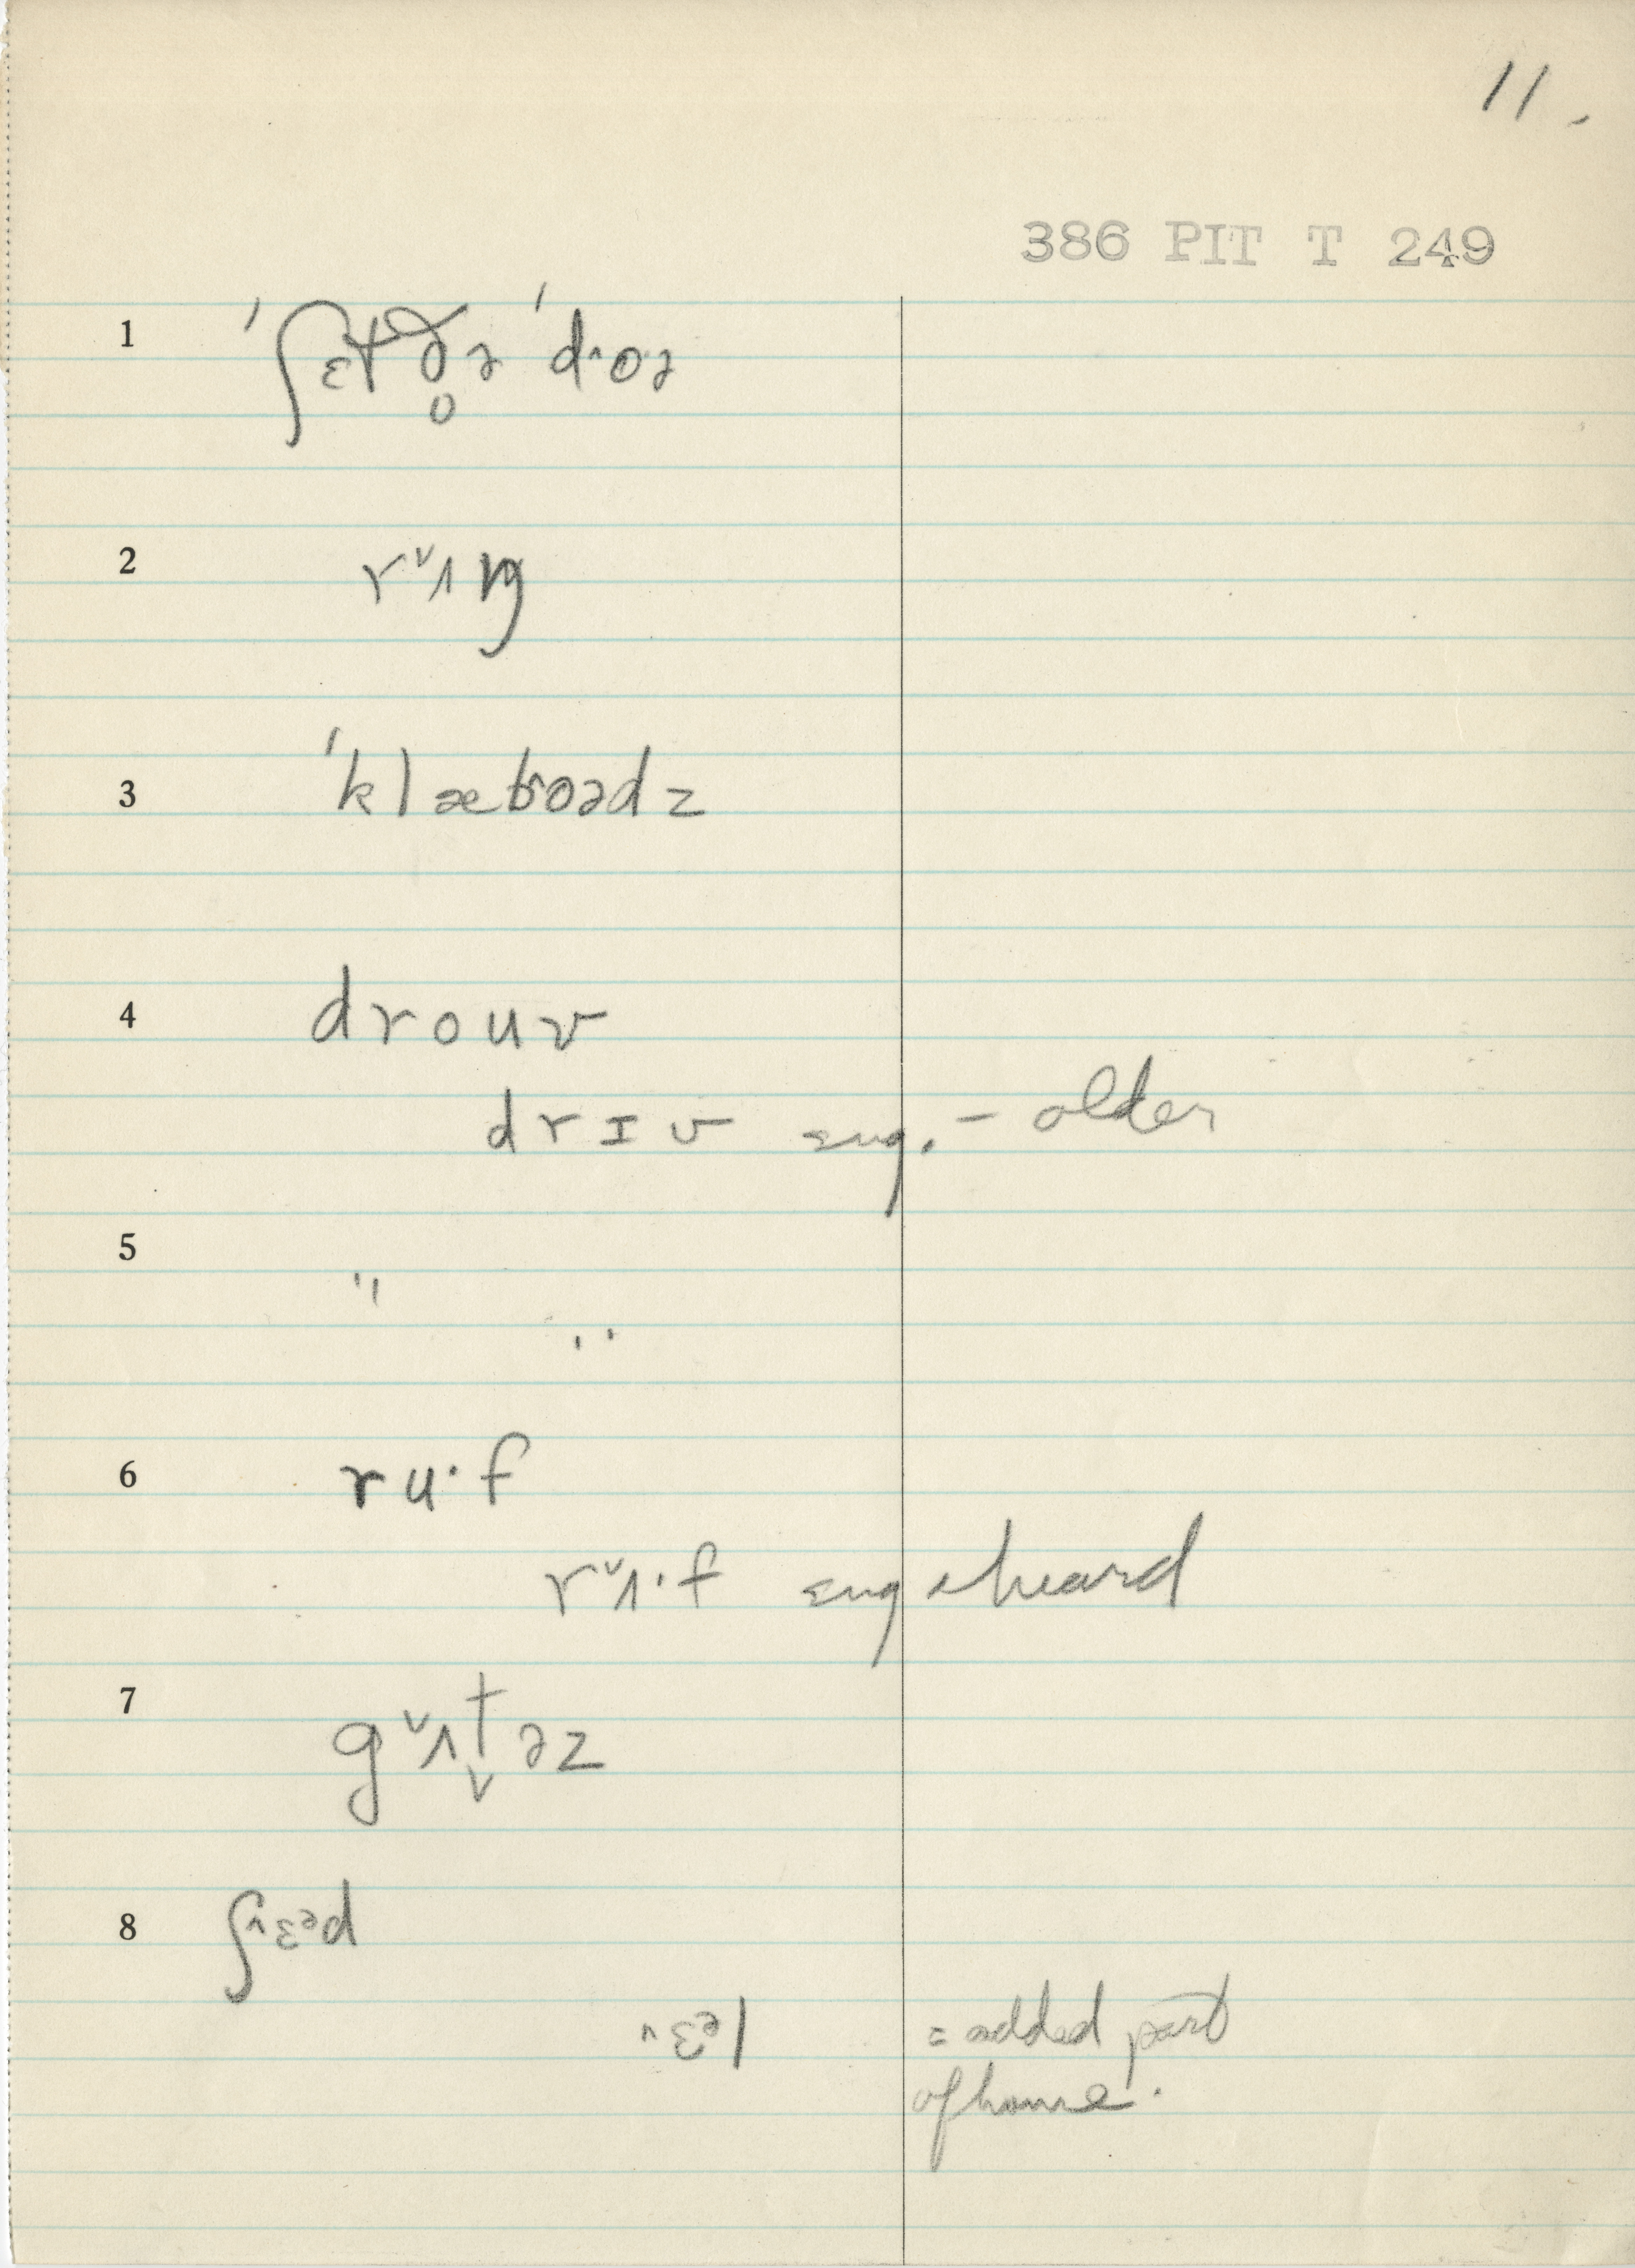 11.
386 PIT T 249
1 ˈʃɛtð̥ə ˈd˄oə
2 r˅ʌŋ
3 ˈklæb˄oədz
4 drouv
drɪv sug. – older
5 " "
6 ru·f
r˅ʌ·f sug & heard
7 g˅ʌt̬əz
8 ʃ˄ɛᵊd
˄ɛᵊl = added part
of house.